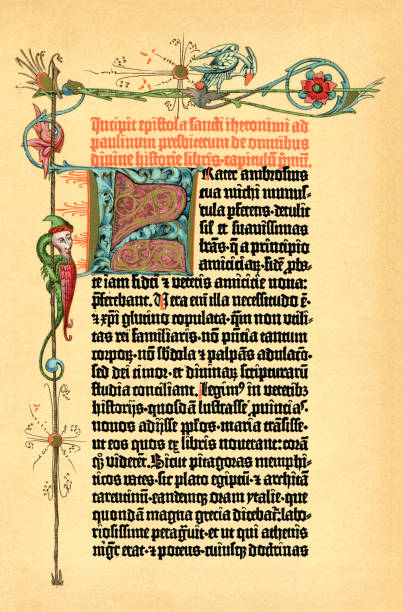 Incipit epistola sancti iheronimi ad
paulinum presbiterum de omnibus
divine historie libris. capitulũ pmũ.
Frater ambrosius
tua michi munus-
cula pferens. detulit
sil' et suavissimas
lrãs. q̃ a principio
amiciciaꝝ. fidẽ pba-
te iam fidei ⁊ veteris amicicie nova:
pferebant. Vera eni illa necessitudo ẽ.
⁊ xpi glutino copulata. qm non utili-
tas rei familiaris. nõ pñtia tantum
corpoꝝ. nõ sbdola ⁊ palpãs adulaco.
sed dei timor. et divinaꝝ scripturarũ
studia conciliant. Legim⁹ in veteribꝫ
historijs. quosdã lustrasse puincias.
novos adijsse pplos. maria trãsisse.
ut eos quos ex libris noverant: corã
qꝫ viderẽt. Sicut pitagoras memphi-
ticos vates. sic plato egiptũ. ⁊ architã
tarentinũ. eandemqꝫ oram ytalie. que
quondã magna grecia dicebat': labo-
riosissime peragravit: et ut qui athenis
mgr erat. ⁊ potens. cuiusqꝫ doctrinas